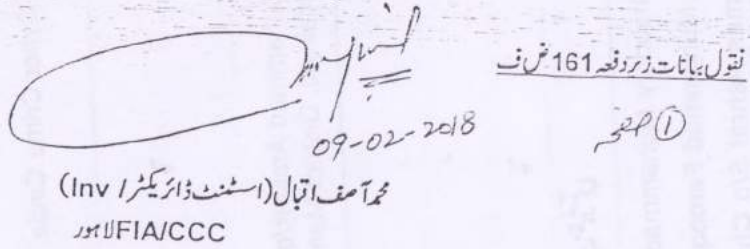 نقول بیانات زیر دفعہ 161 ض ف
① صفحہ
09-02-2018
محمد آصف اقبال (اسسٹنٹ ڈائریکٹر / Inv)
FIA/CCC لاہور